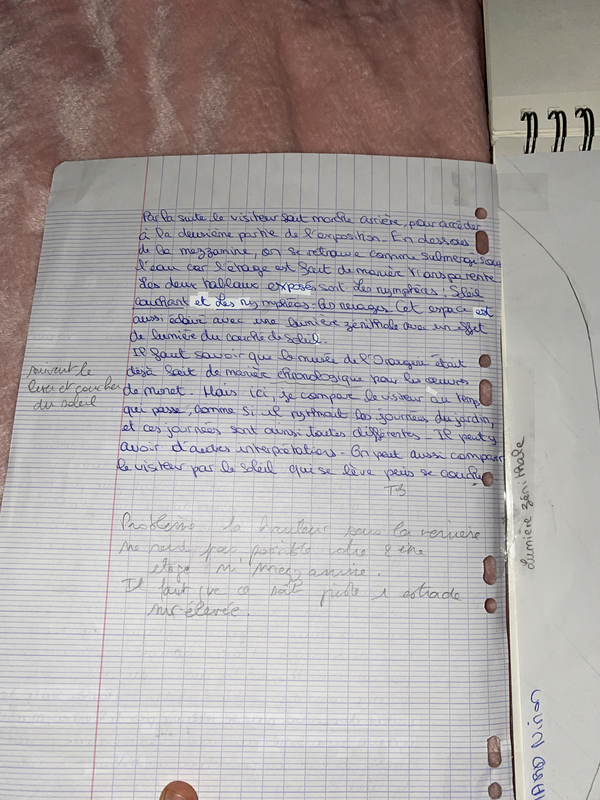 Par la suite, le visiteur fait marche arrière, pour accéder
à la deuxième partie de l'exposition. En dessous
de la mezzanine, on se retrouve comme submergé sous
l'eau car l'étage est fait de manière transparente
Les deux tableaux exposés sont Les nymphéas: Soleil
couchant et Les nymphéas: les nuages. Cet espace est
aussi éclairé avec une lumière zénithale avec un effet
de lumière du couché de soleil.
Il faut savoir que le musée de l'Orangerie était
déjà fait de manière chronologique pour les œuvres
de Monet. Mais ici, je compare le visiteur au temps
qui passe, comme si il rythmait les journées du jardin,
et ces journées sont ainsi toutes différentes. Il peut y
avoir d'autres interprétations. On peut aussi comparer
le visiteur par le soleil qui se lève puis se couche.
TB
suivant le
lever et coucher
du soleil
Problème la hauteur sous la verrière
ne rend pas possible votre 2 ème
étage ni mezzanine.
Il faut que ce soit juste 1 estrade
sur-élevée.
Lumière zénithale